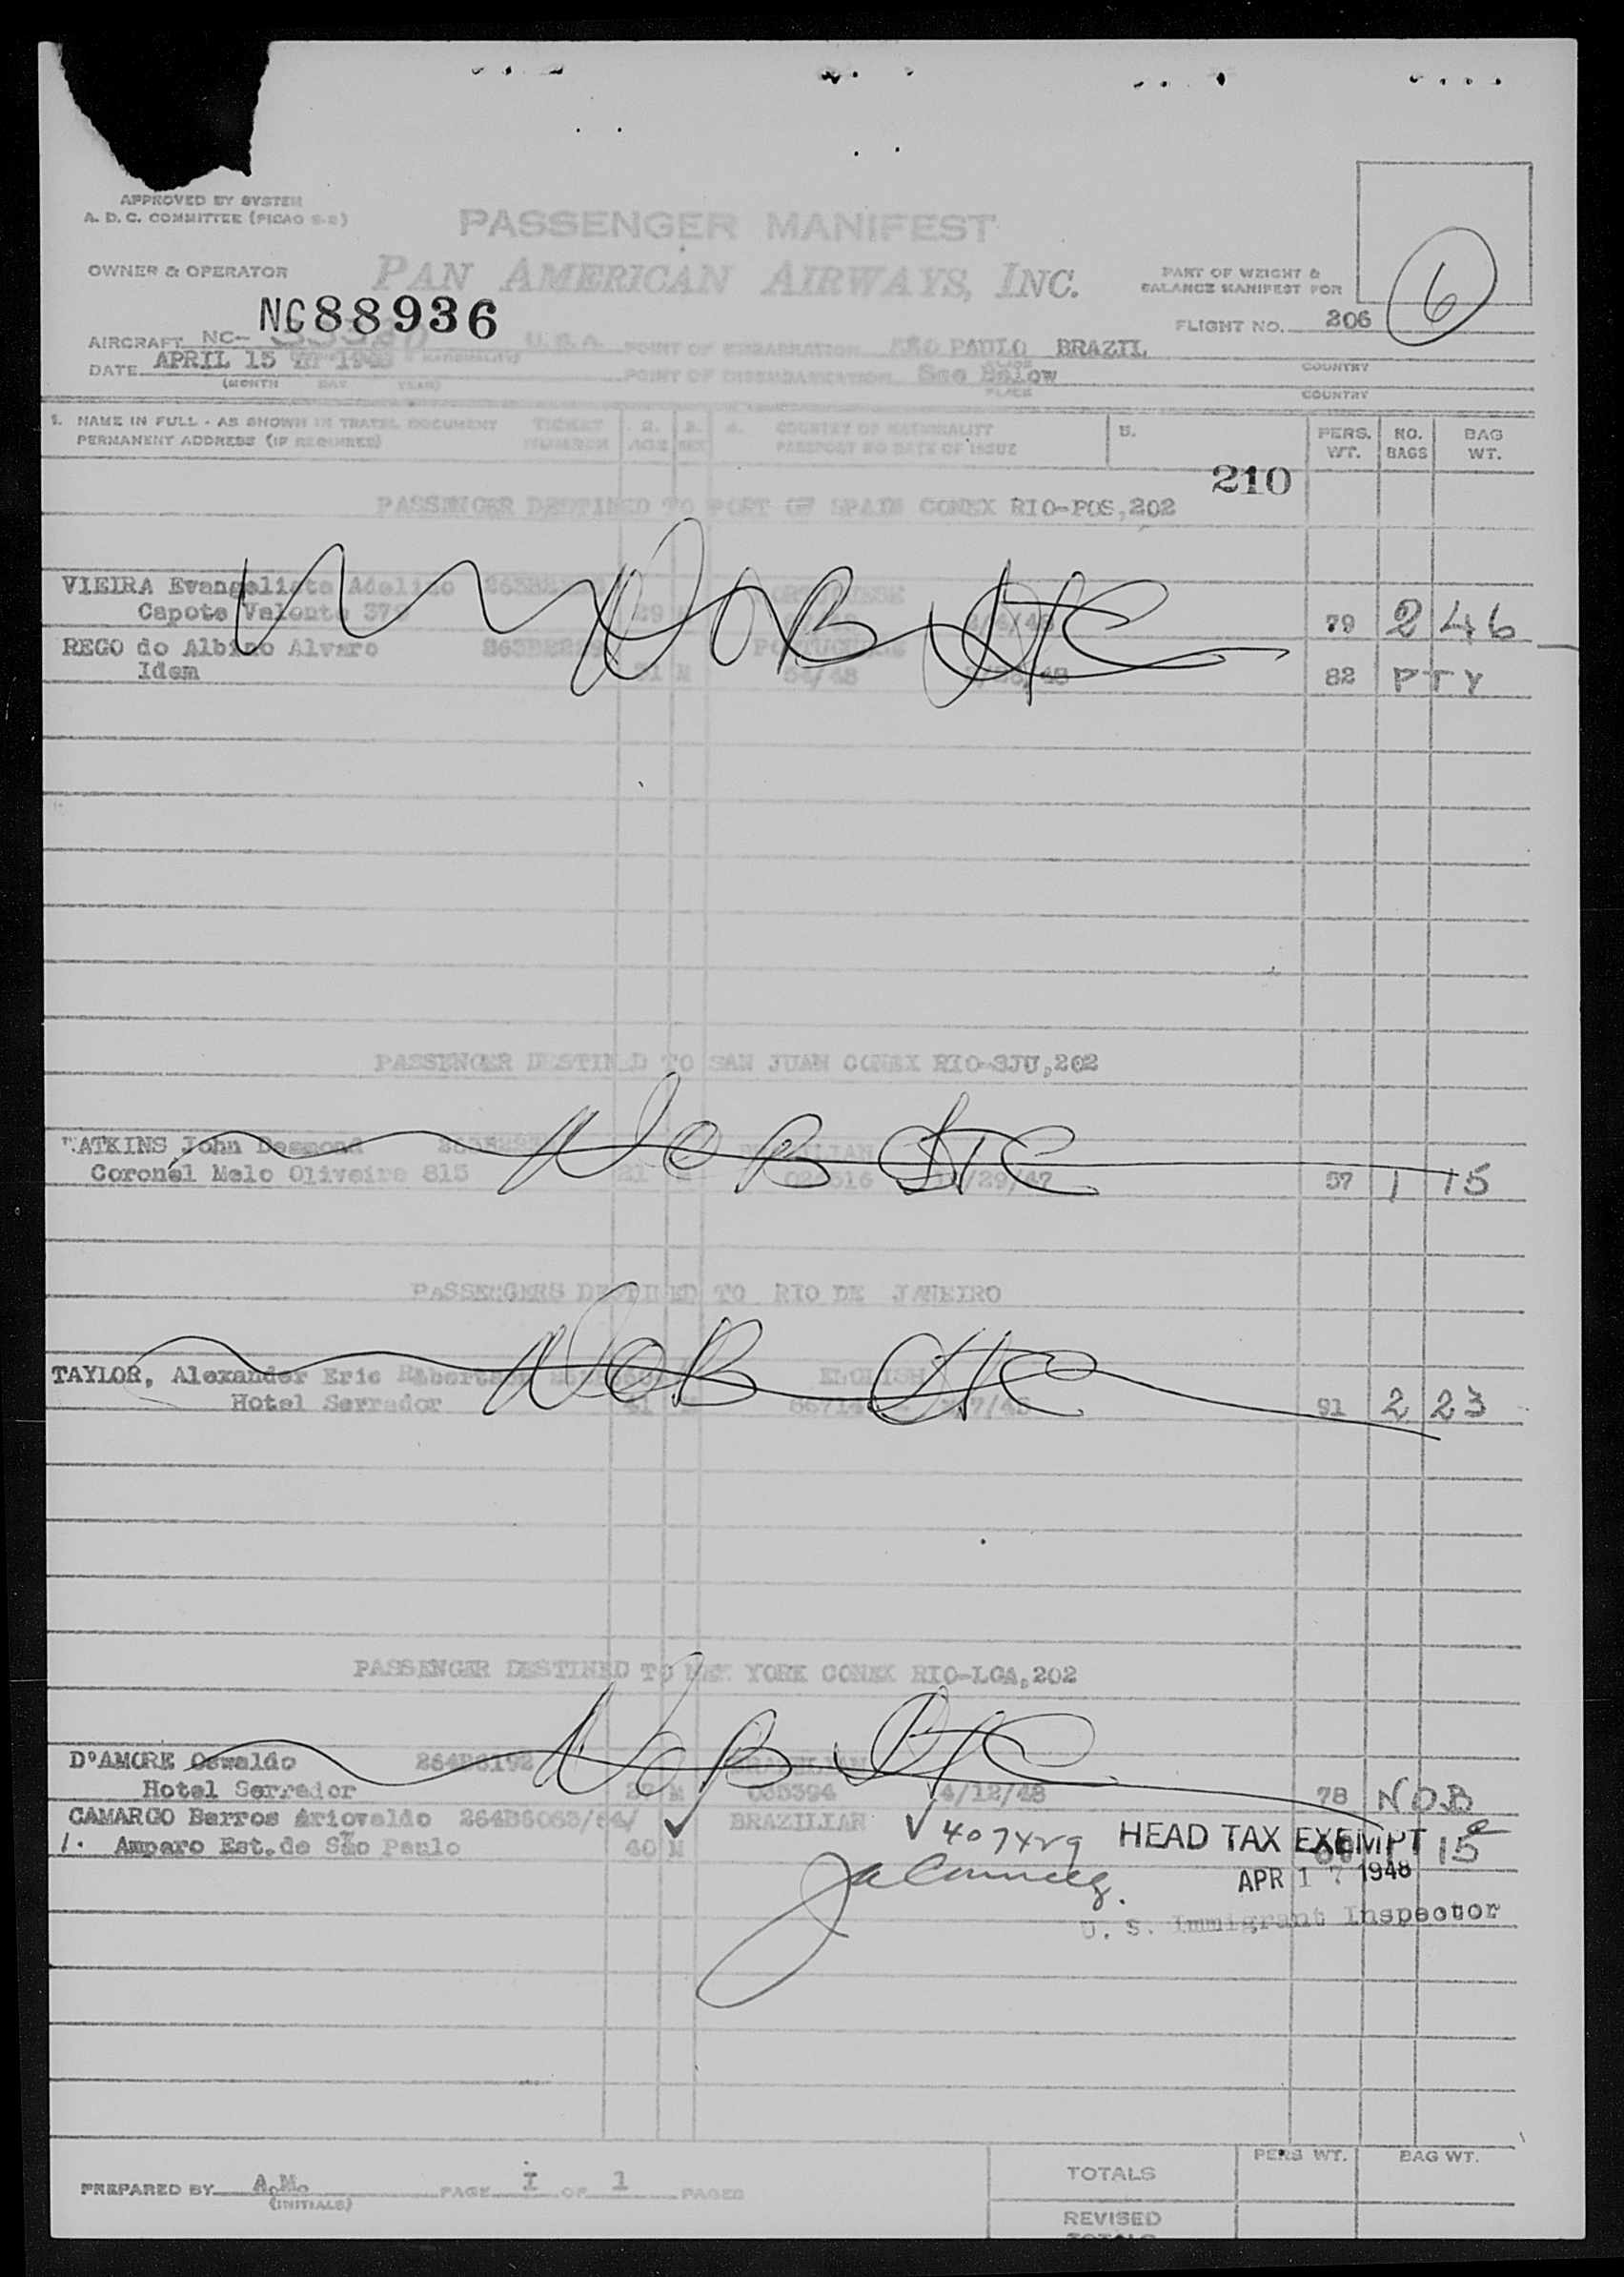 APPROVED BY SYSTEM
A. D. C. COMMITTEE (PICAO S-2)
PASSENGER MANIFEST
OWNER & OPERATOR PAN AMERICAN AIRWAYS, INC.
PART OF WEIGHT &
BALANCE MANIFEST FOR
6
NC88936
FLIGHT NO. 206
AIRCRAFT NC- U.S.A. POINT OF EMBARKATION SÃO PAULO BRAZIL
COUNTRY
DATE APRIL 15 1948 POINT OF DISEMBARKATION See Below
(MONTH DAY YEAR) PLACE COUNTRY
1. NAME IN FULL - AS SHOWN IN TRAVEL DOCUMENT TICKET 2. 3. 4. COUNTRY OF NATIONALITY 5. PERS. NO. BAG
PERMANENT ADDRESS (IF REQUIRED) NUMBER AGE SEX PASSPORT NO DATE OF ISSUE WT. BAGS WT.
210
PASSENGER DESTINED TO PORT OF SPAIN CONEX RIO-POS,202
VIEIRA Evangelista Adelino
NOB STC
Capote Valente 29 79 2 46
REGO do Albino Alvaro PORTUGUESE
Idem M 54/48 82 PTY
PASSENGER DESTINED TO SAN JUAN CONEX RIO-SJU,202
WATKINS John Desmond
NOB STC
Coronel Melo Oliveira 815 21 57 1 15
PASSENGERS DESTINED TO RIO DE JANEIRO
TAYLOR, Alexander Eric Robertson ENGLISH
NOB STC
Hotel Serrador 41 M 91 2 23
PASSENGER DESTINED TO NEW YORK CONEX RIO-LGA,202
NOB STC
D'AMORE Oswaldo 264B6192 BRAZILIAN
Hotel Serrador M 035394 4/12/48 78 NOB
CAMARGO Barros Ariovaldo 264B6063/64/ ✓ BRAZILIAN ✓ HEAD TAX EXEMPT
1. Amparo Est.de São Paulo 40 M 15
APR 17 1948
U. S. Immigrant Inspector
PREPARED BY A.M. PAGE I OF 1 PAGES
(INITIALS)
TOTALS PERS WT. BAG WT.
REVISED
TOTALS